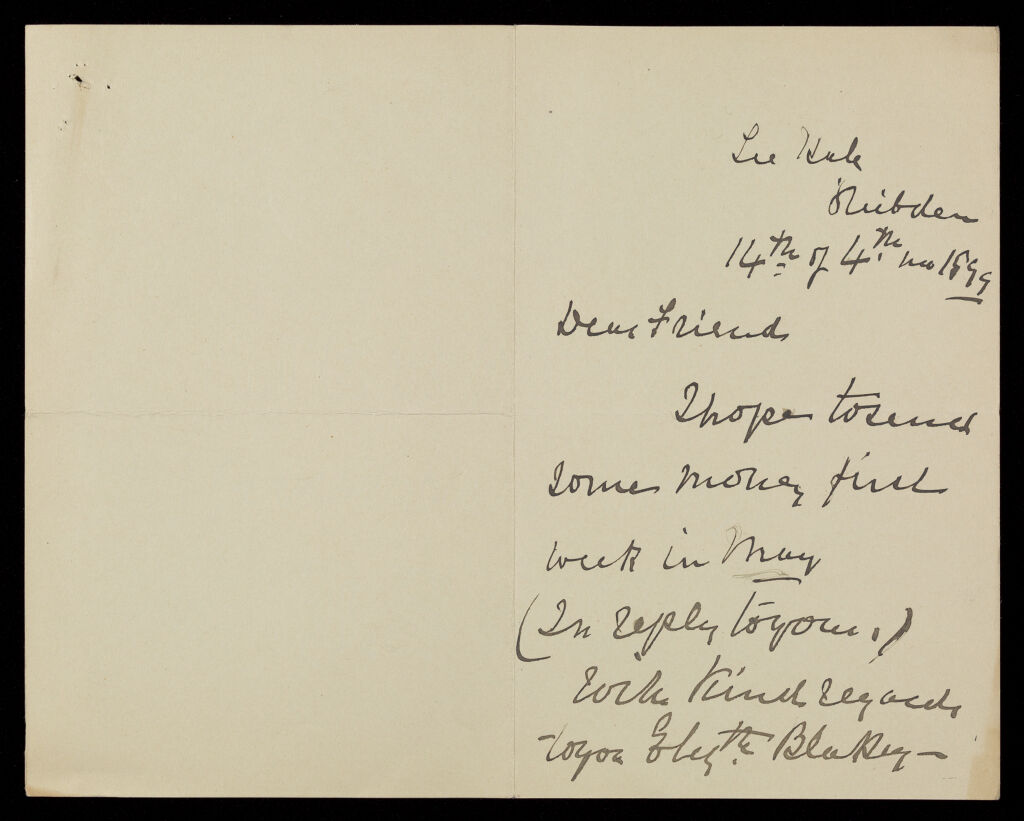 Lee
14th of 4th mo 1899
Dear Friend
I hope to send
some money first
week in May
(In reply to your,)
With Kind regards
to you Elizth Blakey -